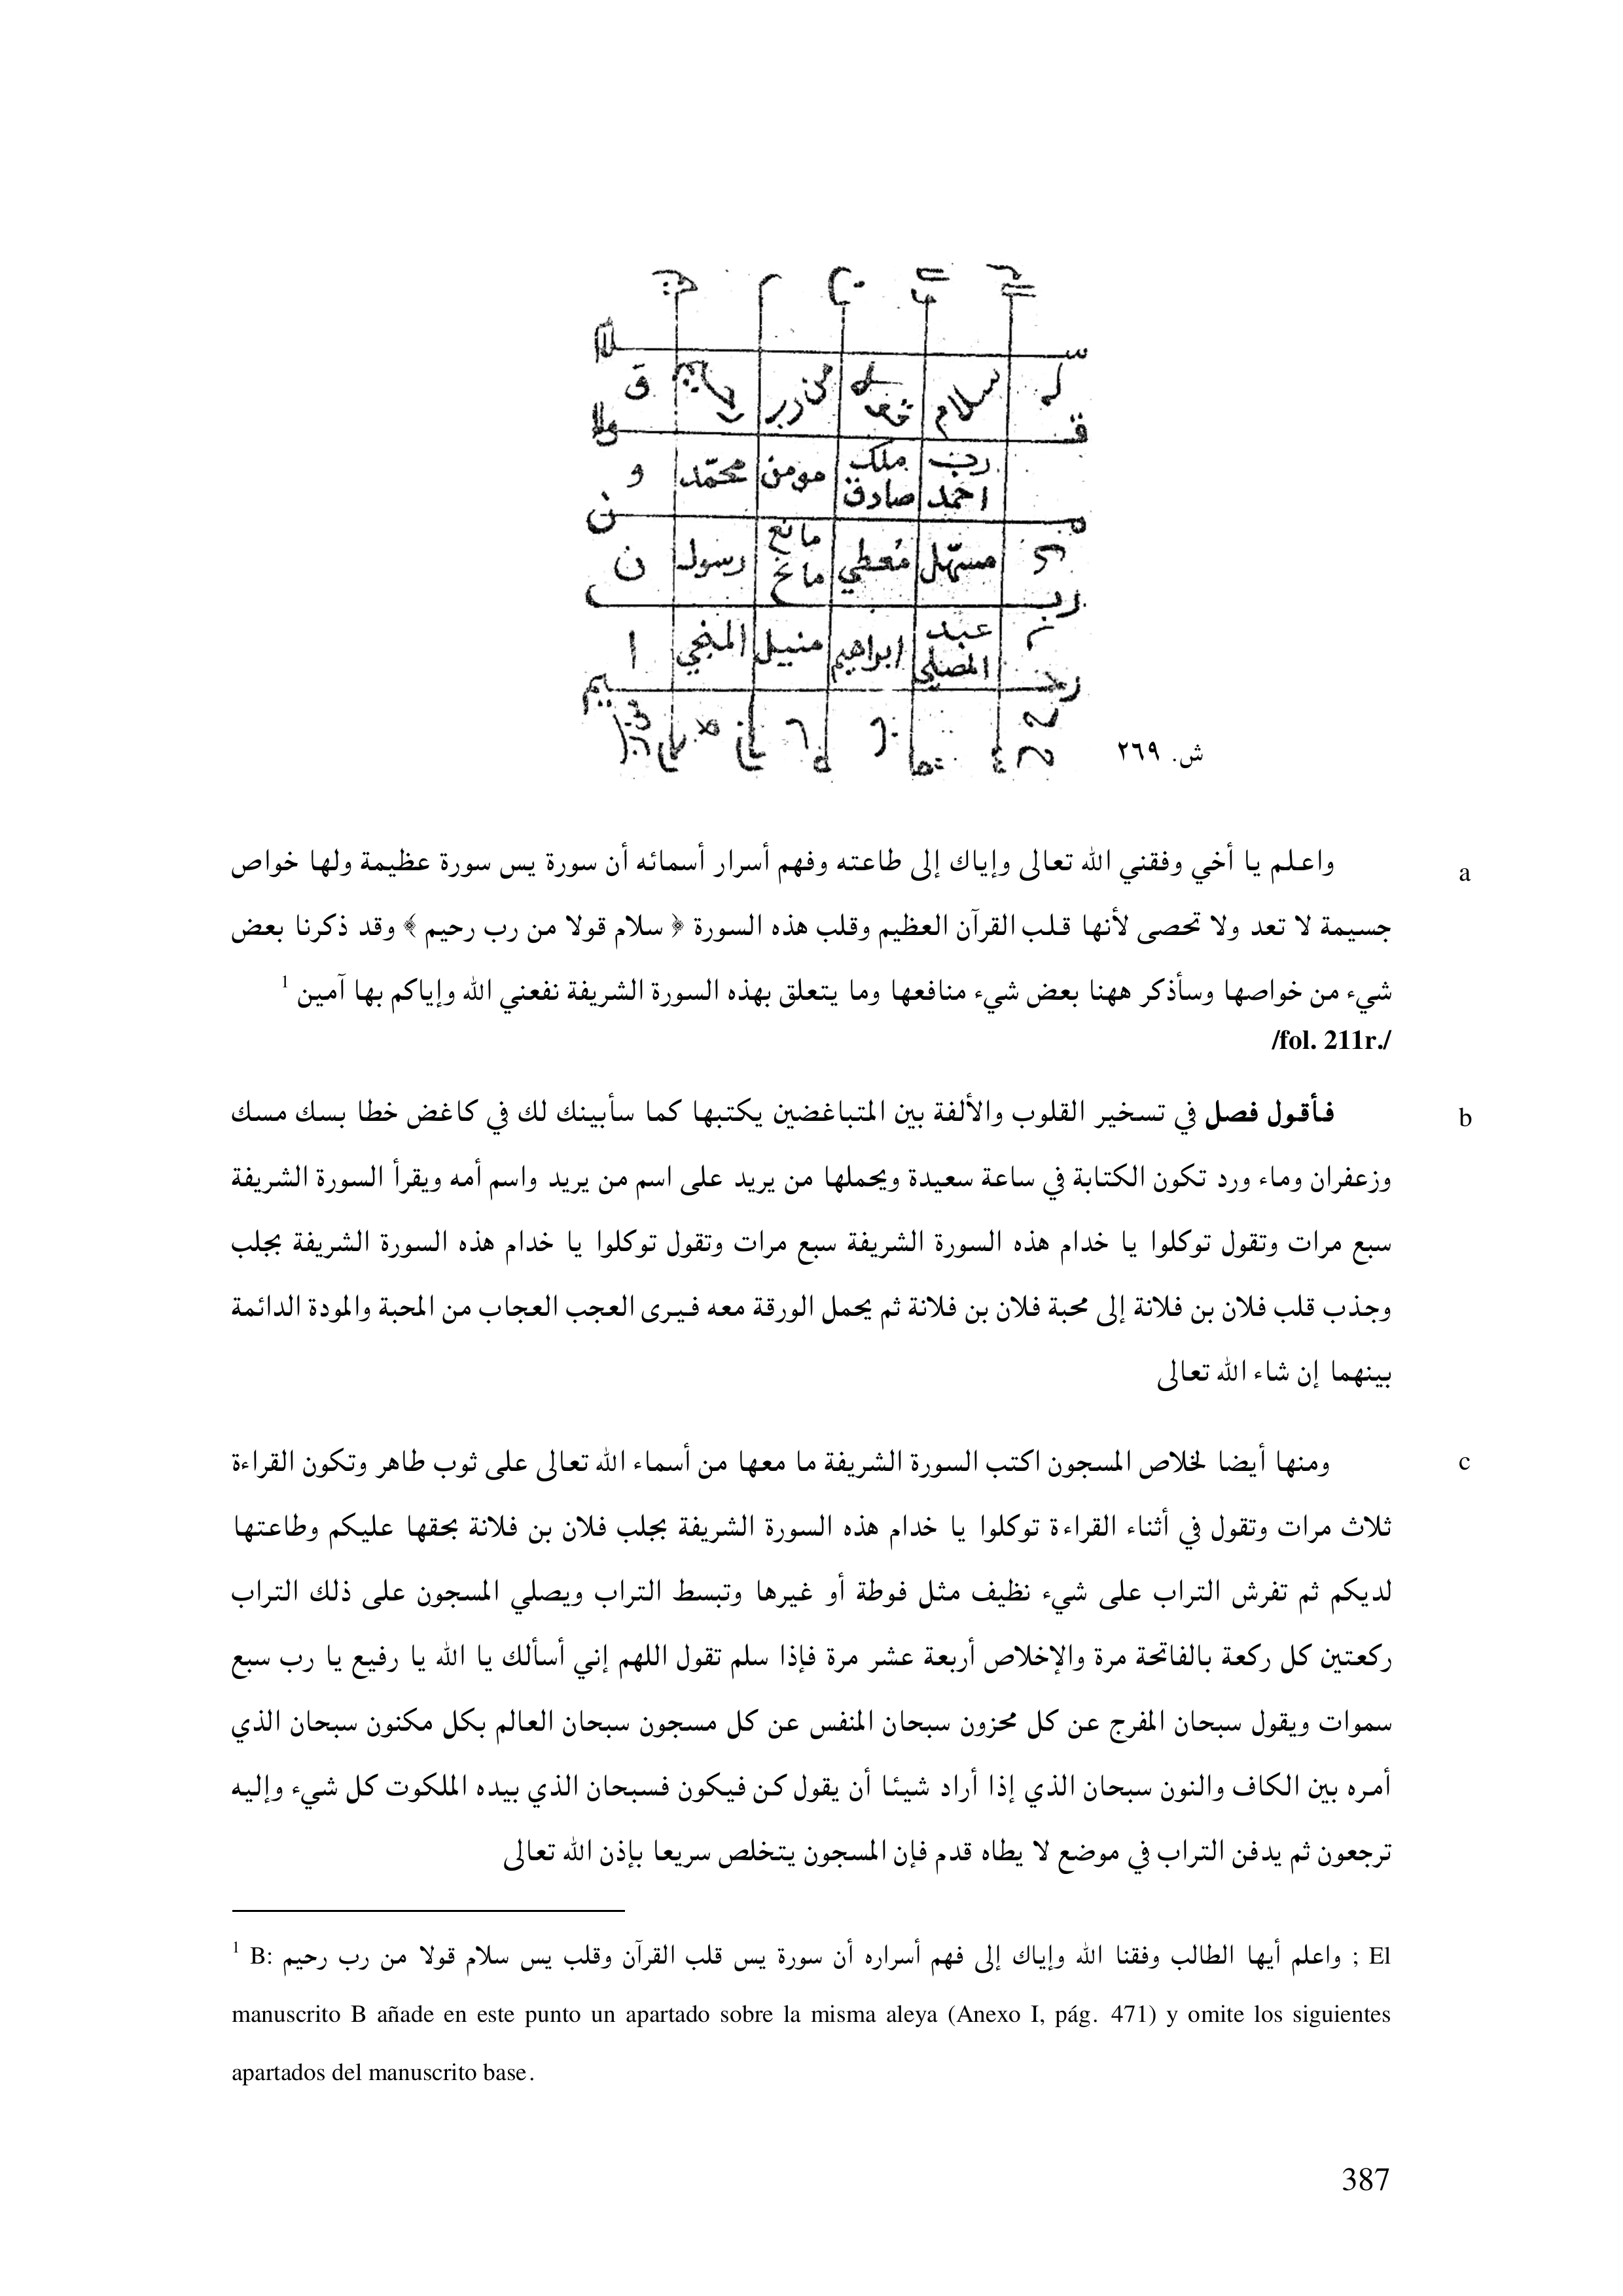 سلام
رب
ملك
مومن
محمّد
و
احمد
صادق
مسهّل
مُعطي
مانع
رسول
ن
مانح
عبد
ابراهيم
منيل
المنجي
ا
المصلي
ش. ٢٦٩
واعلم يا أخي وفقني الله تعالى وإياك إلى طاعته وفهم أسرار أسمائه أن سورة يس سورة عظيمة ولها خواص
a
جسيمة لا تعد ولا تحصى لأنها قلب القرآن العظيم وقلب هذه السورة ﴿ سلام قولا من رب رحيم ﴾ وقد ذكرنا بعض
شيء من خواصها وسأذكر ههنا بعض شيء منافعها وما يتعلق بهذه السورة الشريفة نفعني الله وإياكم بها آمين 1
/fol. 211r./
فأقول فصل في تسخير القلوب والألفة بين المتباغضين يكتبها كما سأبينك لك في كاغض خطا بسك مسك
b
وزعفران وماء ورد تكون الكتابة في ساعة سعيدة ويحملها من يريد على اسم من يريد واسم أمه ويقرأ السورة الشريفة
سبع مرات وتقول توكلوا يا خدام هذه السورة الشريفة سبع مرات وتقول توكلوا يا خدام هذه السورة الشريفة بجلب
وجذب قلب فلان بن فلانة إلى محبة فلان بن فلانة ثم يحمل الورقة معه فيرى العجب العجاب من المحبة والمودة الدائمة
بينهما إن شاء الله تعالى
ومنها أيضا لخلاص المسجون اكتب السورة الشريفة ما معها من أسماء الله تعالى على ثوب طاهر وتكون القراءة
c
ثلاث مرات وتقول في أثناء القراءة توكلوا يا خدام هذه السورة الشريفة بجلب فلان بن فلانة بحقها عليكم وطاعتها
لديكم ثم تفرش التراب على شيء نظيف مثل فوطة أو غيرها وتبسط التراب ويصلي المسجون على ذلك التراب
ركعتين كل ركعة بالفاتحة مرة والإخلاص أربعة عشر مرة فإذا سلم تقول اللهم إني أسألك يا الله يا رفيع يا رب سبع
سموات ويقول سبحان المفرج عن كل محزون سبحان المنفس عن كل مسجون سبحان العالم بكل مكنون سبحان الذي
أمره بين الكاف والنون سبحان الذي إذا أراد شيئا أن يقول كن فيكون فسبحان الذي بيده الملكوت كل شيء وإليه
ترجعون ثم يدفن التراب في موضع لا يطاه قدم فإن المسجون يتخلص سريعا بإذن الله تعالى
1 B: واعلم أيها الطالب وفقنا الله وإياك إلى فهم أسراره أن سورة يس قلب القرآن وقلب يس سلام قولا من رب رحيم ; El
manuscrito B añade en este punto un apartado sobre la misma aleya (Anexo I, pág. 471) y omite los siguientes
apartados del manuscrito base.
387